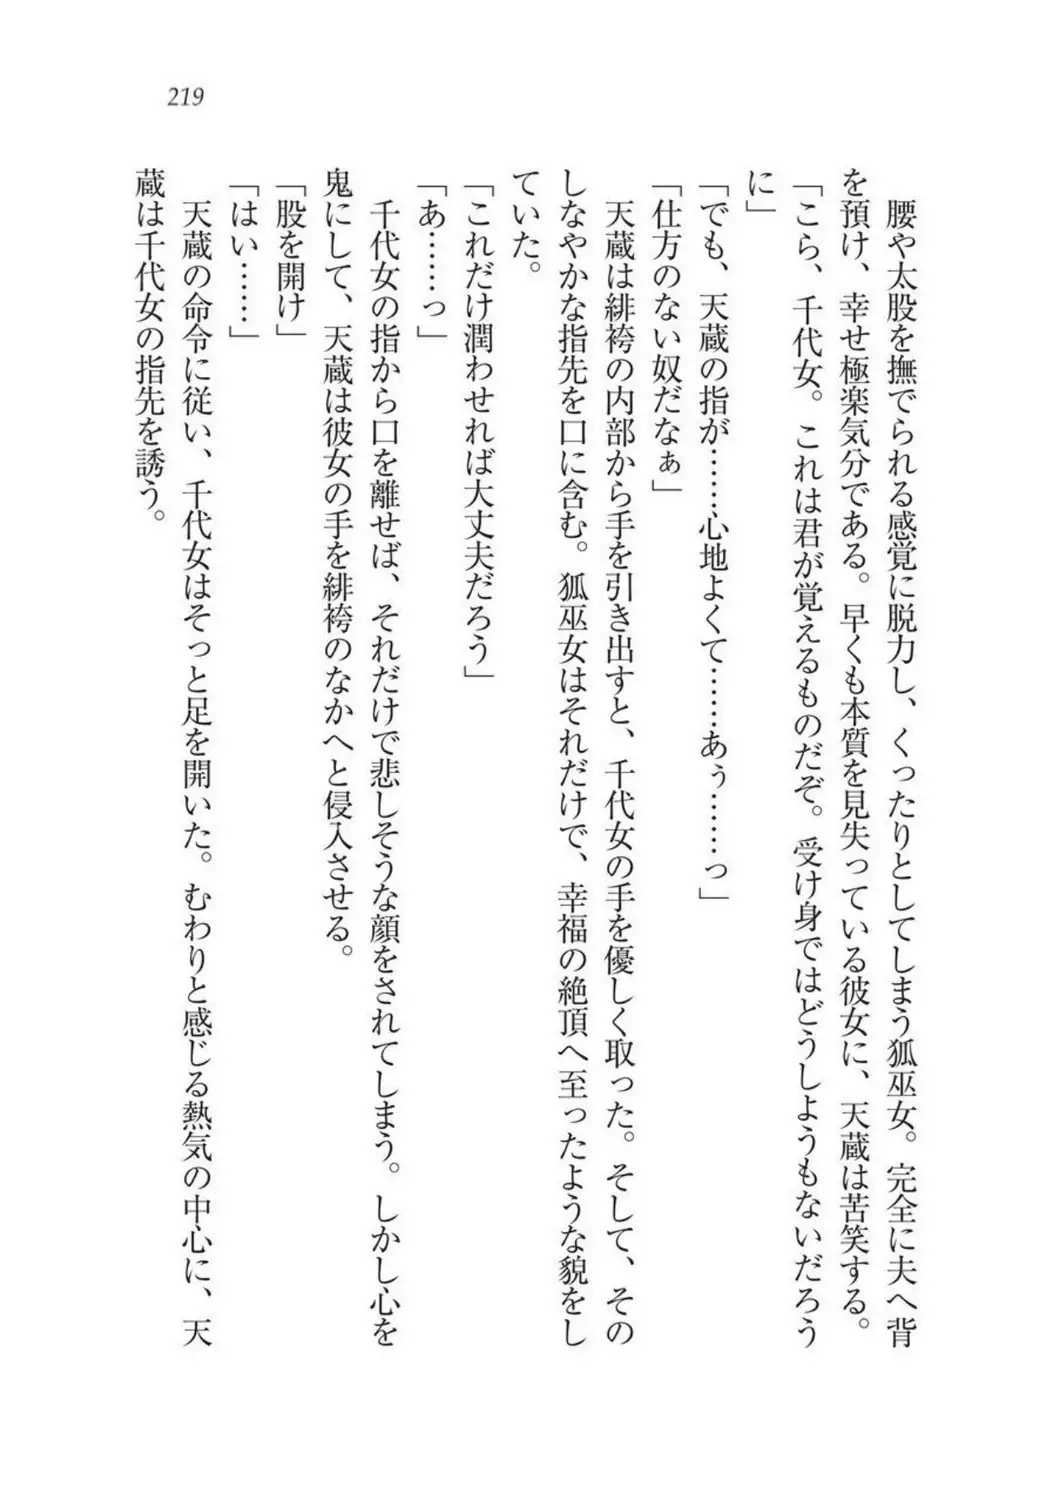 219
腰や太股を撫でられる感覚に脱力し、くったりとしてしまう狐巫女。完全に夫へ背
を預け、幸せ極楽気分である。早くも本質を見失っている彼女に、天蔵は苦笑する。
「こら、千代女。これは君が覚えるものだぞ。受け身ではどうしようもないだろう
に」
「でも、天蔵の指が……心地よくて……あぅ……っ」
「仕方のない奴だなぁ」
天蔵は緋袴の内部から手を引き出すと、千代女の手を優しく取った。そして、その
しなやかな指先を口に含む。狐巫女はそれだけで、幸福の絶頂へ至ったような貌をし
ていた。
「これだけ潤わせれば大丈夫だろう」
「あ……っ」
千代女の指から口を離せば、それだけで悲しそうな顔をされてしまう。しかし心を
鬼にして、天蔵は彼女の手を緋袴のなかへと侵入させる。
「股を開け」
「はい……」
天蔵の命令に従い、千代女はそっと足を開いた。むわりと感じる熱気の中心に、天
蔵は千代女の指先を誘う。